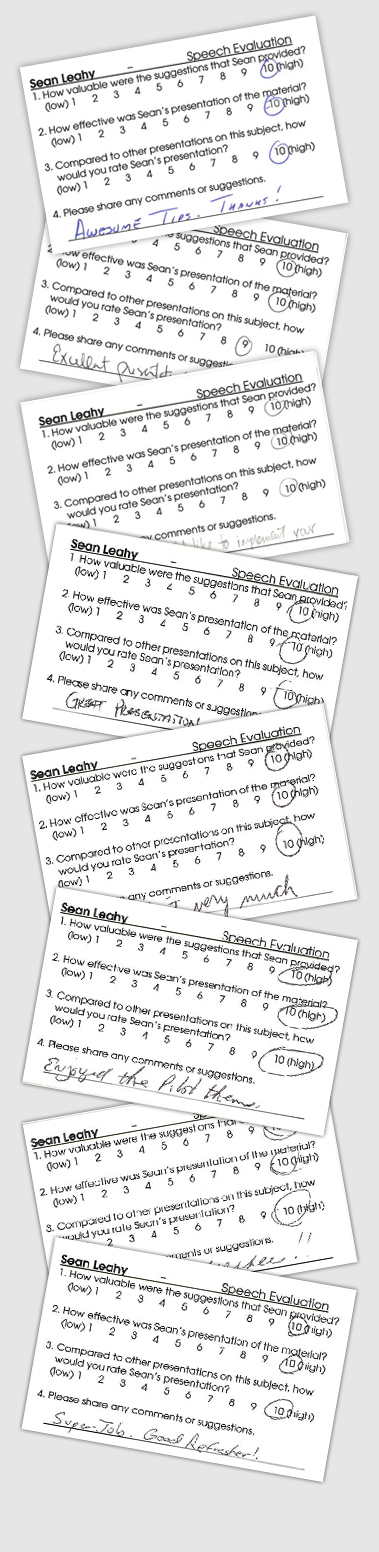 Sean Leahy – Speech Evaluation
1. How valuable were the suggestions that Sean provided?
(low) 1 2 3 4 5 6 7 8 9 10 (high)
2. How effective was Sean's presentation of the material?
(low) 1 2 3 4 5 6 7 8 9 10 (high)
3. Compared to other presentations on this subject, how
would you rate Sean's presentation?
(low) 1 2 3 4 5 6 7 8 9 10 (high)
4. Please share any comments or suggestions.
Awesome Tips. Thanks!
Speech Evaluation
suggestions that Sean provided?
4 5 6 7 8 9 10 (high)
2. How effective was Sean's presentation of the material?
(low) 1 2 3 4 5 6 7 8 9 10 (high)
3. Compared to other presentations on this subject, how
would you rate Sean's presentation?
(low) 1 2 3 4 5 6 7 8 9 10 (high)
4. Please share any comments or
Excellent
Sean Leahy – Speech Evaluation
1. How valuable were the suggestions that Sean provided?
(low) 1 2 3 4 5 6 7 8 9 10 (high)
2. How effective was Sean's presentation of the material?
(low) 1 2 3 4 5 6 7 8 9 10 (high)
3. Compared to other presentations on this subject, how
would you rate Sean's presentation?
1 2 3 4 5 6 7 8 9 10 (high)
comments or suggestions.
like to implement your
Sean Leahy – Speech Evaluation
1 How valuable were the suggestions that Sean provided?
(low) 1 2 3 4 5 6 7 8 9 10 (high)
2. How effective was Sean's presentation of the material?
(low) 1 2 3 4 5 6 7 8 9 10 (high)
3. Compared to other presentations on this subject, how
would you rate Sean's presentation?
(low) 1 2 3 4 5 6 7 8 9 10 (high)
4. Please share any comments or suggestions
Great Presentation!
Sean Leahy – Speech Evaluation
1. How valuable were the suggestions that Sean provided?
(low) 1 2 3 4 5 6 7 8 9 10 (high)
2. How effective was Sean's presentation of the material?
(low) 1 2 3 4 5 6 7 8 9 10 (high)
3. Compared to other presentations on this subject, how
would you rate Sean's presentation?
(low) 1 2 3 4 5 6 7 8 9 10 (high)
any comments or suggestions.
very much
Sean Leahy – Speech Evaluation
1. How valuable were the suggestions that Sean provided?
(low) 1 2 3 4 5 6 7 8 9 10 (high)
2. How effective was Sean's presentation of the material?
(low) 1 2 3 4 5 6 7 8 9 10 (high)
3. Compared to other presentations on this subject, how
would you rate Sean's presentation?
(low) 1 2 3 4 5 6 7 8 9 10 (high)
4. Please share any comments or suggestions.
Enjoyed the Pilot theme.
Sean Leahy –
1. How valuable were the suggestions that
(low) 1 2 3 4 5 6 7 8 9
2. How effective was Sean's presentation of the material?
(low) 1 2 3 4 5 6 7 8 9 10 (high)
3. Compared to other presentations on this subject, how
would you rate Sean's presentation?
1 2 3 4 5 6 7 8 9 10 (high)
comments or suggestions.
!!
Sean Leahy – Speech Evaluation
1. How valuable were the suggestions that Sean provided?
(low) 1 2 3 4 5 6 7 8 9 10 (high)
2. How effective was Sean's presentation of the material?
(low) 1 2 3 4 5 6 7 8 9 10 (high)
3. Compared to other presentations on this subject, how
would you rate Sean's presentation?
(low) 1 2 3 4 5 6 7 8 9 10 (high)
4. Please share any comments or suggestions.
Super Job. Good Refresher!